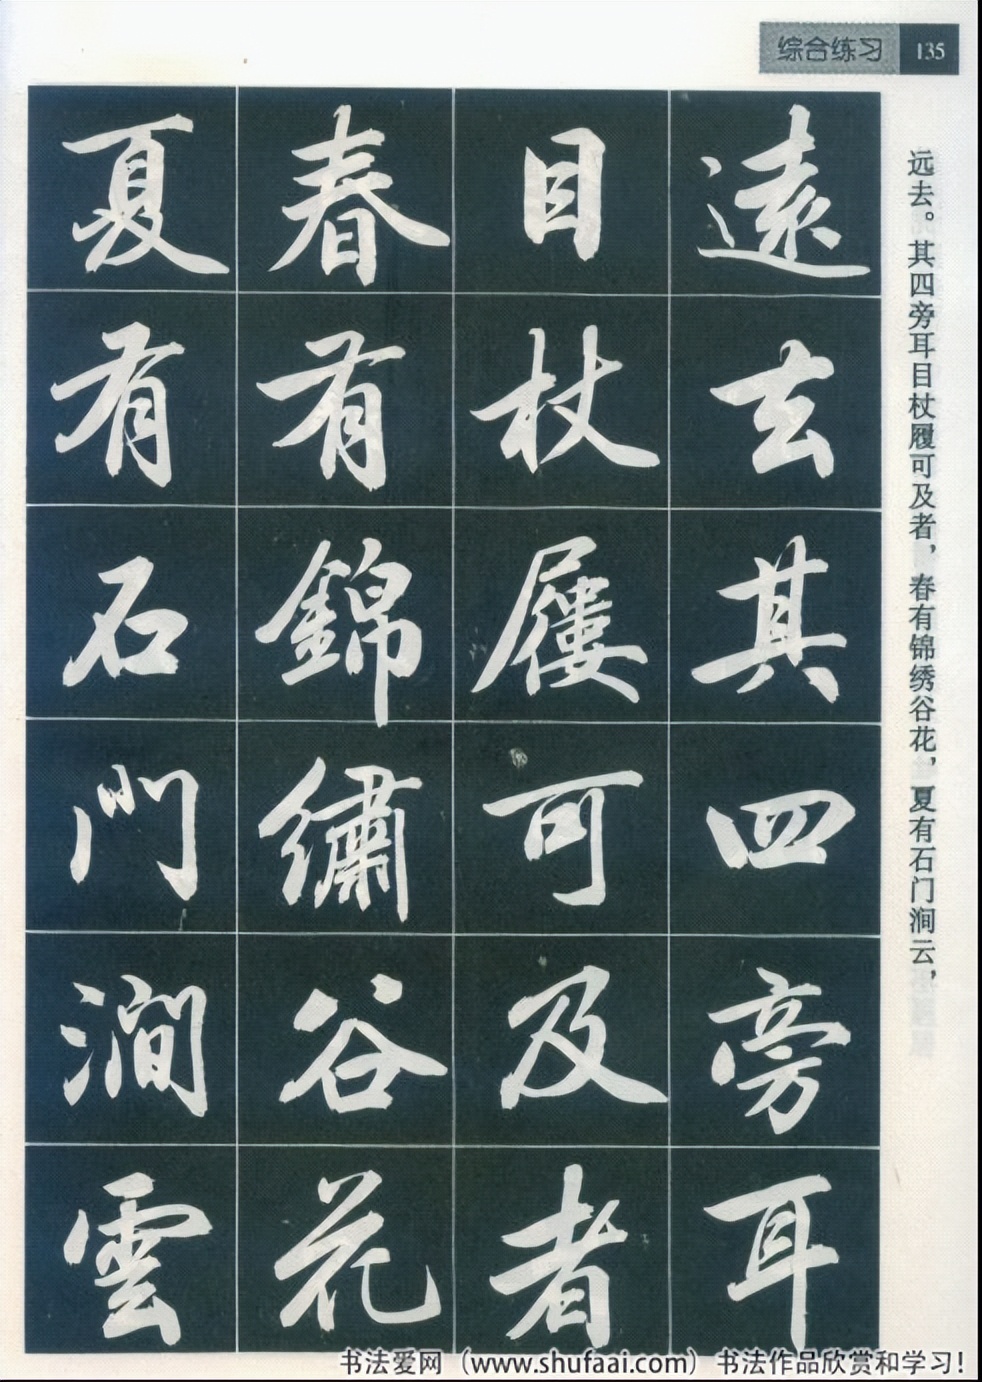 综合练习 135
远去。其四旁耳目杖履可及者，春有锦绣谷花，夏有石门涧云，
遠去其四旁耳
目杖屨可及者
春有錦繡谷花
夏有石門澗雲
书法爱网（www.shufaai.com）书法作品欣赏和学习！